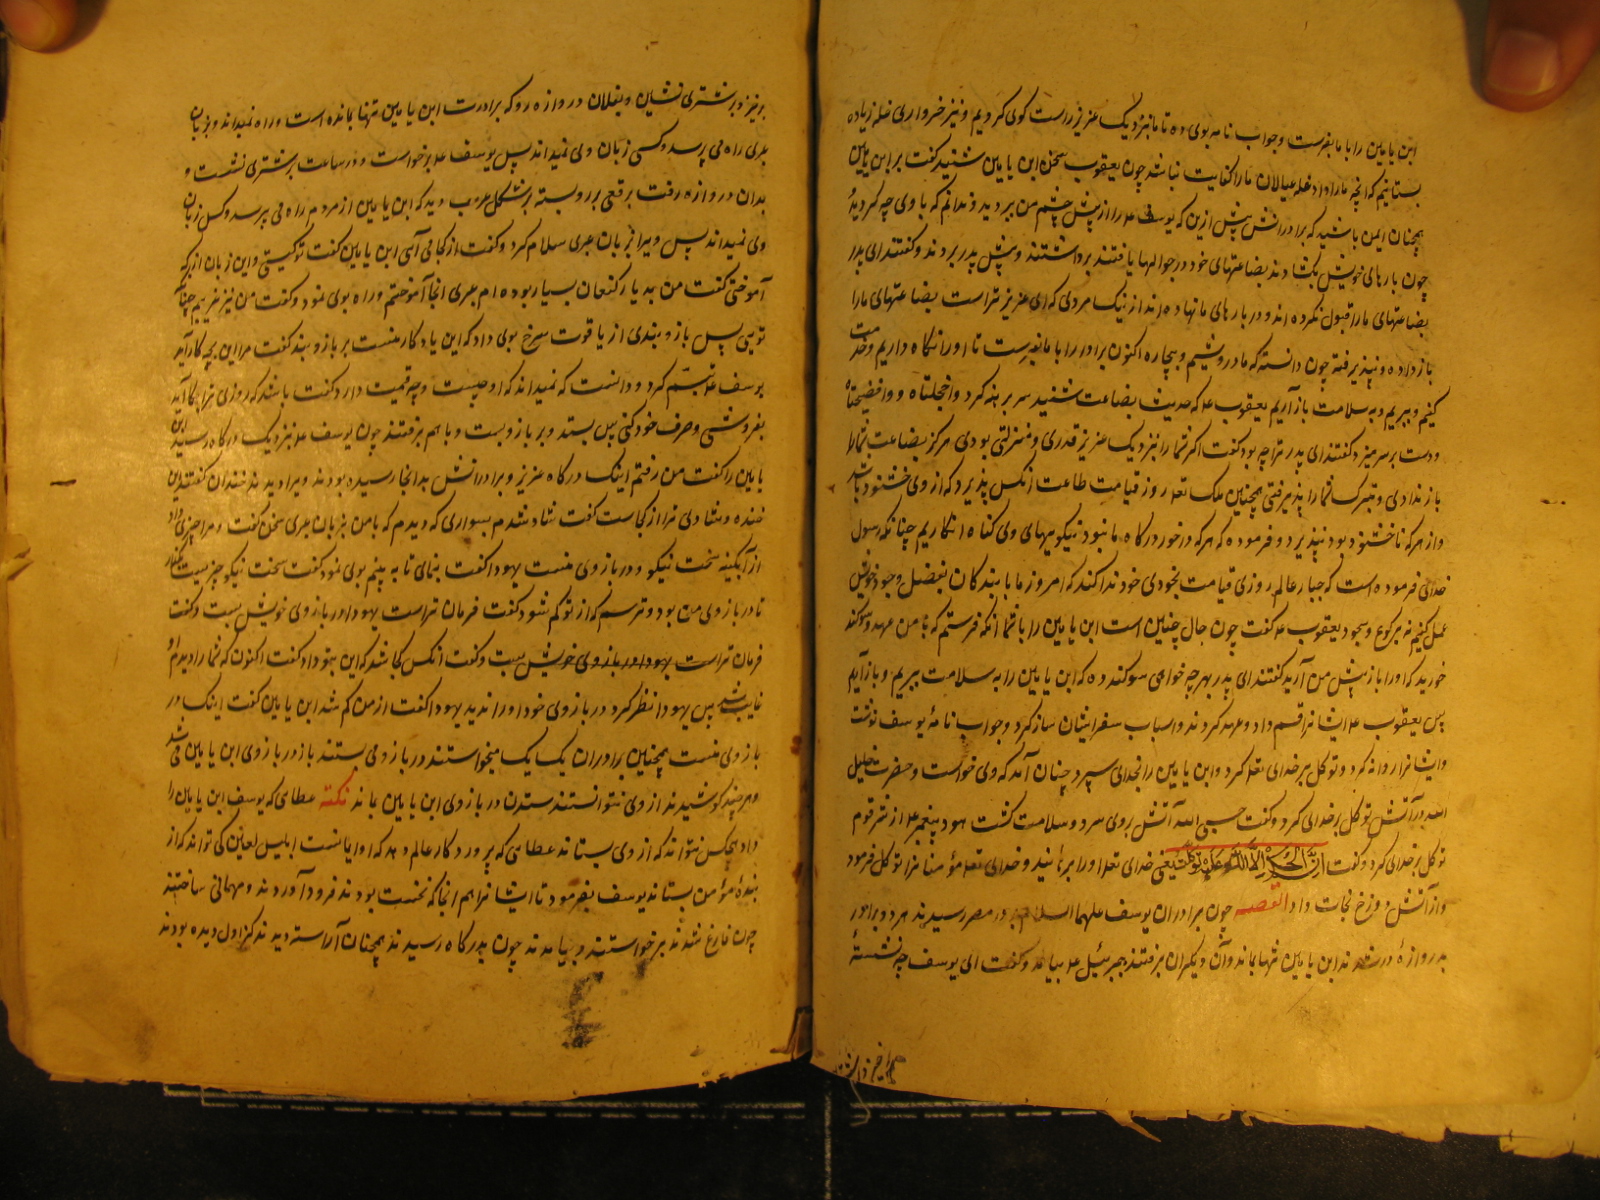 ابن یامین را با ما بفرست و جواب نامه بوی ده تا ما بنزدیک عزیز راست گوی گردیم و نیز خرواری غله زیاده
بستانیم که آنچه ما را داد غله عیالان ما را کفایت نباشد چون یعقوب سخن ابن یامین شنید گفت بر ابن یامین
همچنان ایمن باشید که برادرانش پیش ازین که یوسف ع را از پیش چشم من ببردید و ندانم که با وی چه کردید
چون بارهای خویش بگشادند بضاعتهای خود در جوالها یافتند برداشتند و پیش پدر بردند و گفتند ای پدر
بضاعتهای ما را قبول نکرده اند و در بارهای ما نهاده اند از نیک مردی که ای عزیز تراست بضاعتهای ما را
باز داده و نپذیرفته چون دانسته که ما درویشیم و بیچاره اکنون برادر را با ما بفرست تا او را نگاه داریم و خدمت
کنیم و ببریم و به سلامت باز آریم یعقوب ع که حدیث بضاعت شنید سر برهنه کرد وا خجلتاه و وا فضیحتاه
و دست بر سر میزد گفتند ای پدر ترا چه بود گفت اگر شما را بنزدیک عزیز قدری و منزلتی بودی هرگز بضاعت شما را
باز ندادی و تبرک شما را پذیرفتی همچنین ملک تعالی روز قیامت طاعت آنکس پذیرد که از وی خشنود باشد
و از هر که ناخشنود بود نپذیرد و فرموده که هر که در خور درگاه ما نبود نیکوییهای وی گناه انگاریم چنانکه رسول
خدای فرموده است که جبار عالم روزی قیامت بخودی خود ندا کند که امروز ما با بندگان بفضل و جود خویش
عمل کنیم نه برکوع و سجود یعقوب ع گفت چون حال چنین است ابن یامین را با شما آنگه فرستیم که با من عهد و سوگند
خورید که او را باز پیش من آرید گفتند ای پدر بهر چه خواهی سوگند ده که ابن یامین را به سلامت ببریم و باز آریم
پس یعقوب ع ایشانرا قسم داد و عهد کردند و اسباب سفر ایشان ساز کرد و جواب نامهٔ یوسف نوشت
و ایشانرا روانه کرد و توکل بر خدای تعالی کرد و ابن یامین را بخدای سپرد چنان آمد که وی خواست و حضرت خلیل
الله در آتش توکل بر خدای کرد و گفت حسبی الله آتش بر وی سرد و سلامت گشت هود پیغمبر ع از شر قوم
توکل بر خدای کرد و گفت ان الحکم الا لله علیه توکلت یعنی خدای تعالی او را برهانید و خدای تعالی مؤمنانرا توکل فرمود
و از آتش دوزخ نجات داد القصه چون برادران یوسف علیهما السلام در مصر رسیدند هر دو برادر
بدروازهٔ در شدند ابن یامین تنها بماند و آن دیگران برفتند جبرئیل ع بیامد و گفت ای یوسف چه نشستهٔ
برخیز و بر شتری نشین و بفلان دروازه رو که برادرت ابن یامین تنها بمانده است و راه نمیداند و بزبان
عبری راه می پرسد و کسی زبان وی نمیداند پس یوسف ع برخواست و در ساعت بر شتری نشست و
بدان دروازه رفت برقعی بر رو بسته بر شکل عرب دید که ابن یامین از مردم راه می پرسد و کس زبان
وی نمیداند پس ویرا بزبان عبری سلام کرد و گفت از کجا می آئی ابن یامین گفت تو کیستی و این زبان از که
آموختی گفت من به دیار کنعان بسیار بوده ام عبری آنجا آموختم و راه بوی نمود و گفت من نیز غریبم چنانکه
تویی پس بازوبندی از یاقوت سرخ بوی داد که این یادگار منست بر بازو بند گفت مرا این بچه کار آید
یوسف ع تبسم کرد و دانست که نمیداند که او چیست و چه قیمت دارد گفت باشد که روزی ترا بکار آید
بفروشی و صرف خود کنی پس بستد و بر بازو بست و با هم برفتند چون یوسف ع بنزدیک درگاه رسید ابن
یامین را گفت من رفتم اینک درگاه عزیز و برادرانش بدانجا رسیده بودند ویرا دیدند خندان گفتند این
خنده و شادی ترا از کجاست گفت شاد شدم بسواری که دیدم که با من بزبان عبری سخن گفت و مرا چیزی داد
از آبگینه سخت نیکو و در بازوی منست یهودا گفت بنمای تا به بینم بوی نمود گفت سخت نیکو چیزیست بگذار
تا در بازوی من بود و ترسم که از تو گم شود گفت فرمان تراست یهودا در بازوی خویش بست و گفت
فرمان تراست یهودا در بازوی خویش بست و گفت آنکس کجا شد که این بتو داد گفت اکنون که شما را دیدم او
غایب شد پس یهودا نظر کرد در بازوی خود او را ندید یهودا گفت از من گم شد ابن یامین گفت اینک در
بازوی منست همچنین برادران یک یک میخواستند در بازو می بستند باز در بازوی ابن یامین می شد
و هر چند کوشیدند از وی نتوانستند ستدن در بازوی ابن یامین بماند نکته عطایی که یوسف ابن یامین را
داد هیچکس نتواند که از وی بستاند عطایی که پروردگار عالم دهد که او ایمانست ابلیس لعین کی تواند که از
بندهٔ مؤمن بستاند یوسف بفرمود تا ایشانرا هم آنجا که نخست بودند فرود آوردند و مهمانی ساختند
چون فارغ شدند برخواستند و بیامدند چون بدرگاه رسیدند همچنان آراسته دیدند که اول دیده بودند